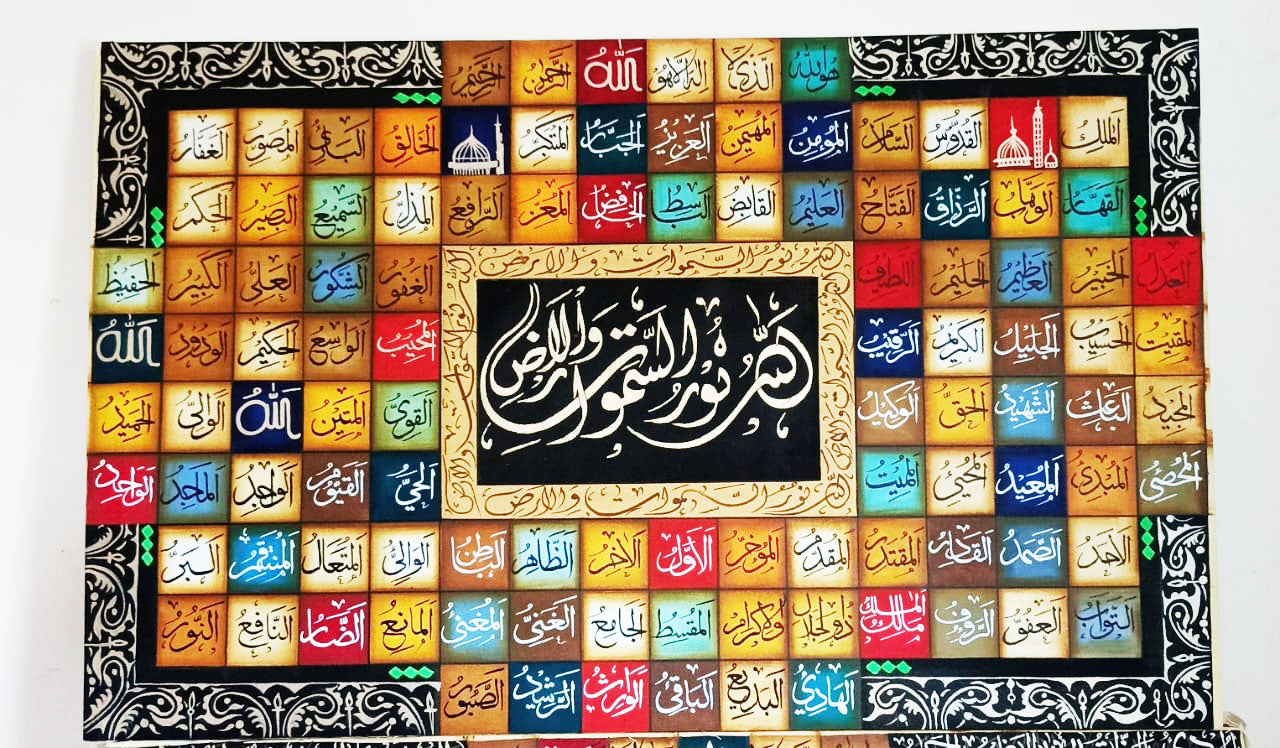 هو الله الذي لا اله الا هو الله الرحمن الرحيم
الملك القدوس السلام المؤمن المهيمن العزيز الجبار المتكبر الخالق البارئ المصور الغفار
القهار الوهاب الرزاق الفتاح العليم القابض الباسط الخافض المعز الرافع المذل السميع البصير الحكم
العدل الخبير العظيم الحليم اللطيف
الغفور الشكور العلي الكبير الحفيظ
المقيت الحسيب الجليل الكريم الرقيب
المجيب الواسع الحكيم الودود الله
المجيد الباعث الشهيد الحق الوكيل
القوي المتين الله الولي الحميد
المحصي المبدئ المعيد المحيي المميت
الحي القيوم الواجد الماجد الواحد
الله نور السموات والارض
الله نور السموات والارض
الله نور السموات والارض
الاحد الصمد القادر المقتدر المقدم المؤخر الأول الآخر الظاهر الباطن الوالي المتعال المنتقم البر
التواب العفو الرؤف مالك الملك ذوالجلال والاكرام المقسط الجامع الغني المغني المانع الضار النافع النور
الهادي البديع الباقي الوارث الرشيد الصبور